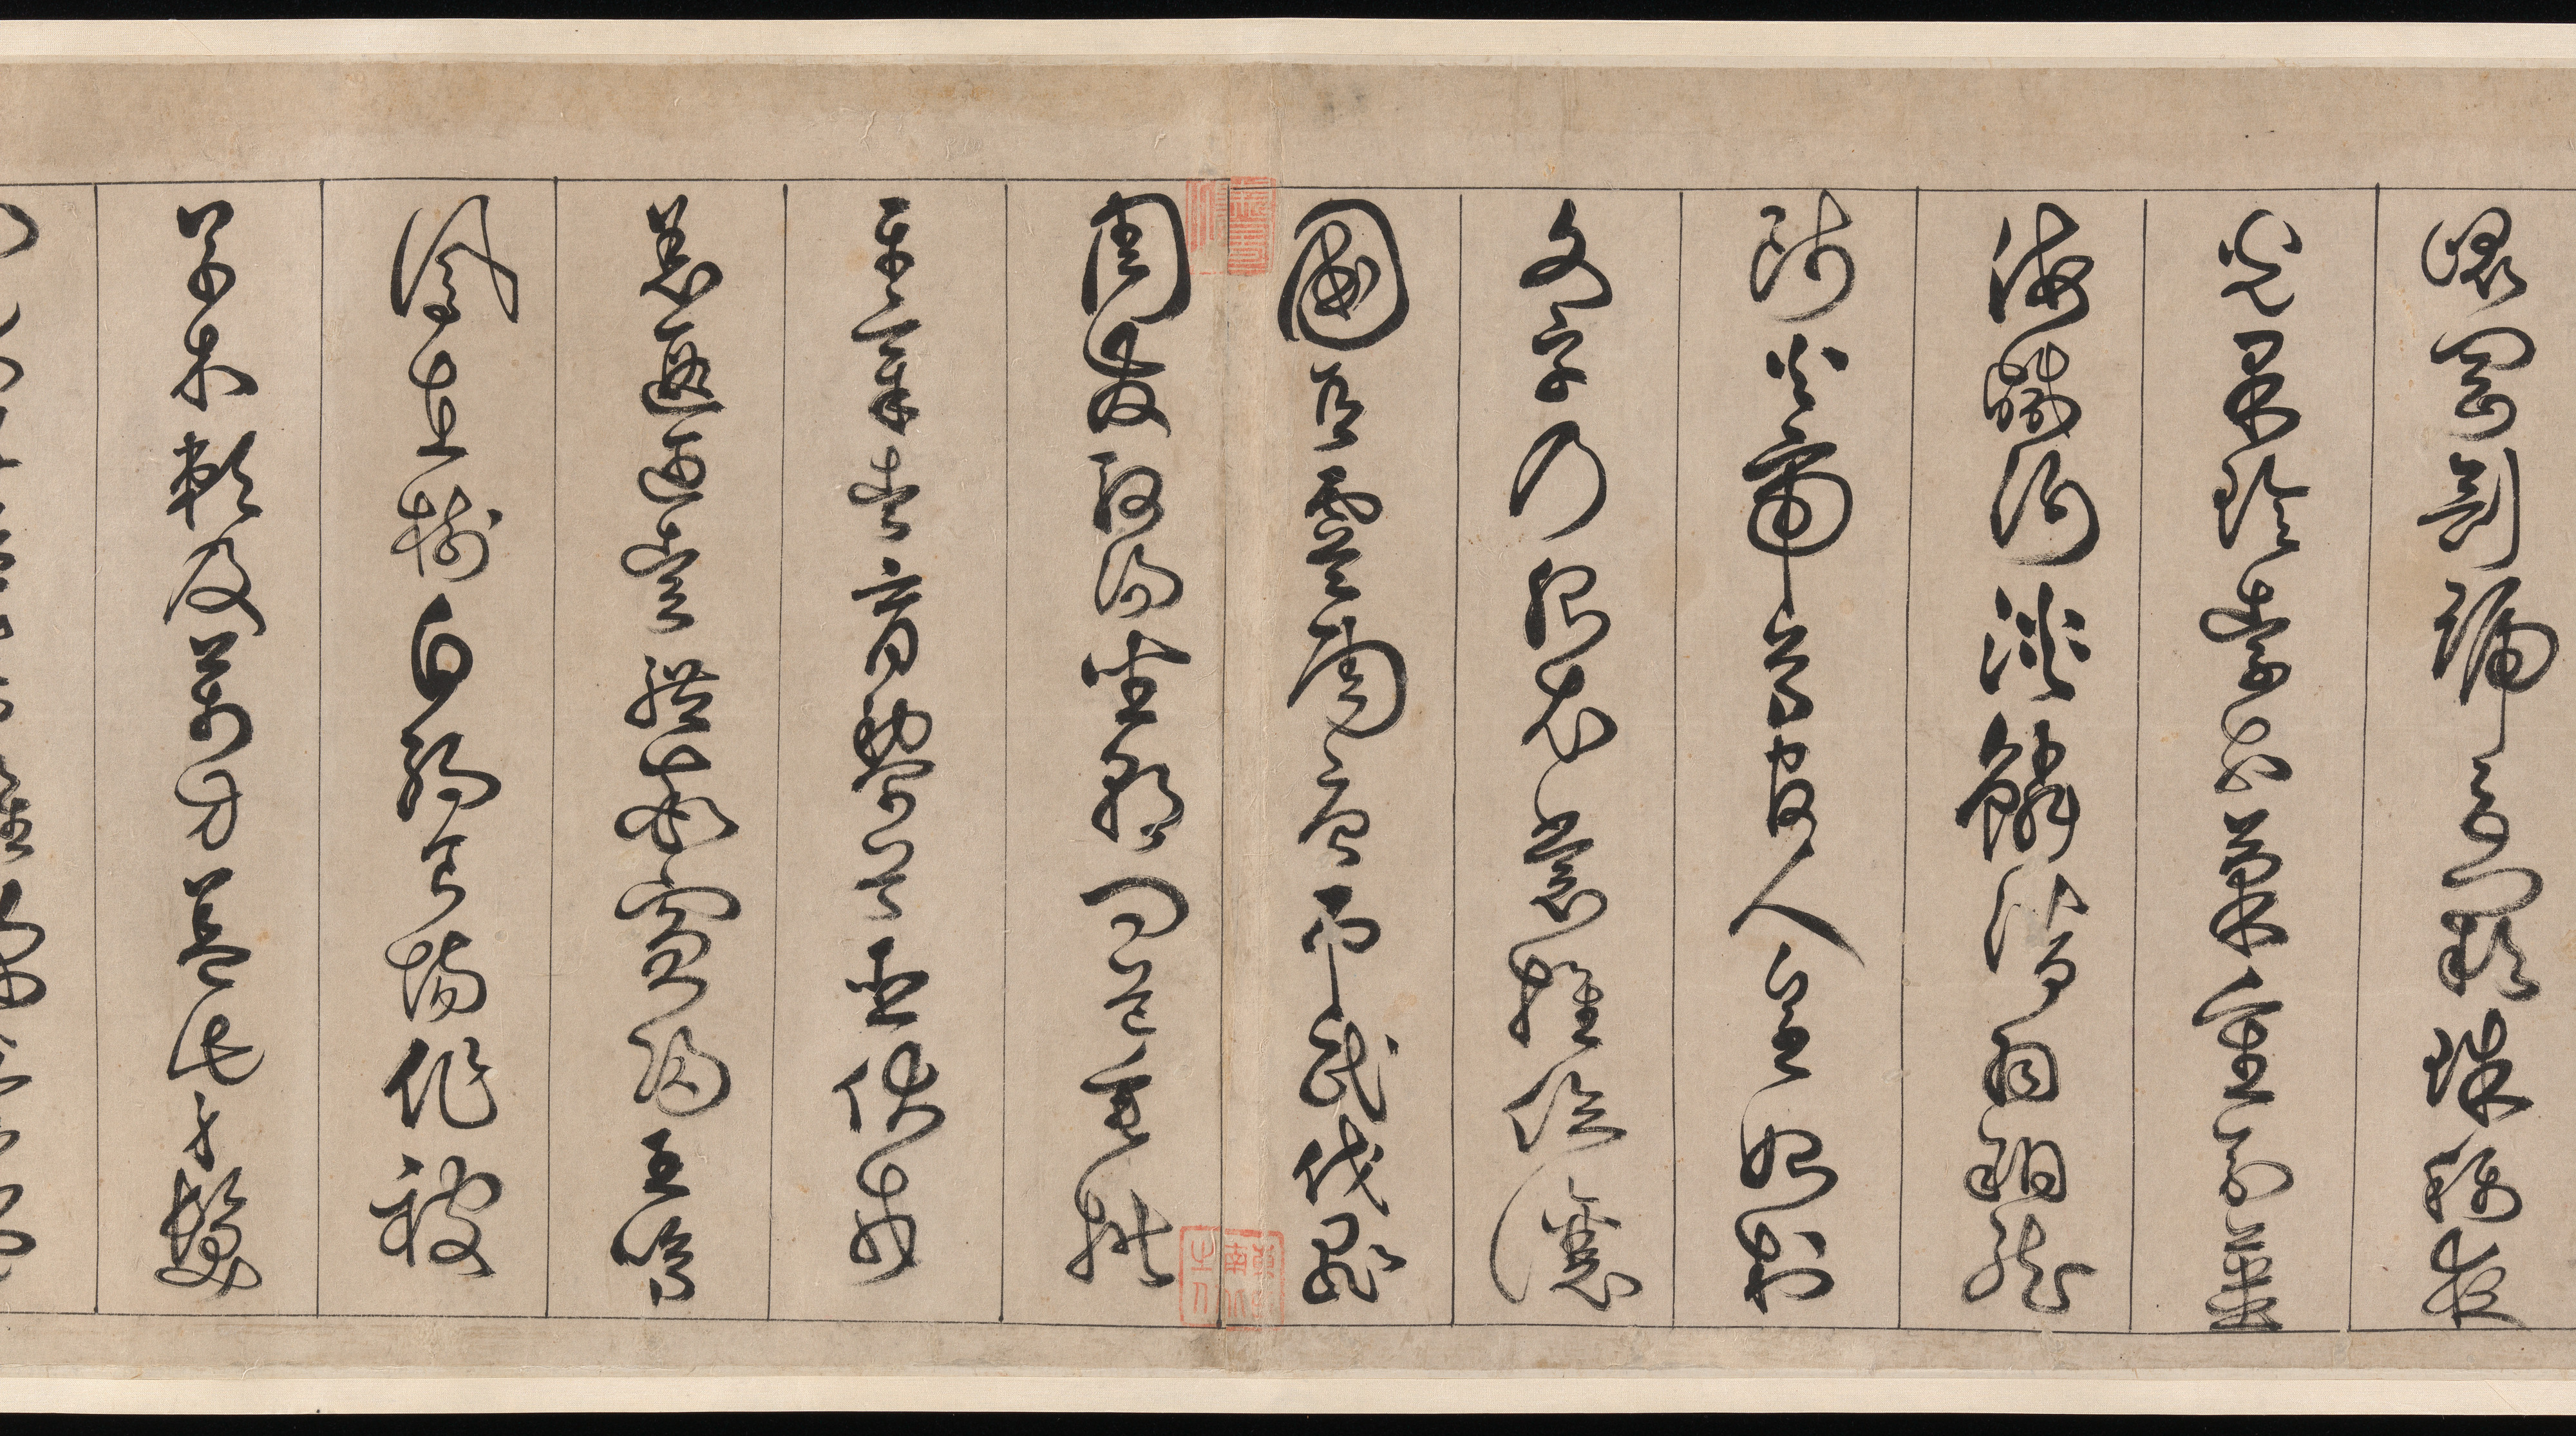 崑岡劍號巨闕珠稱夜
光果珍李柰菜重芥薑
海鹹河淡鱗潛羽翔龍
師火帝鳥官人皇始制
文字乃服衣裳推位讓
國有虞陶唐弔民伐罪
周發殷湯坐朝問道垂拱
平章愛育黎首臣伏戎
羌遐邇壹體率賓歸王鳴
鳳在樹白駒食場化被
草木賴及萬方蓋此身髮